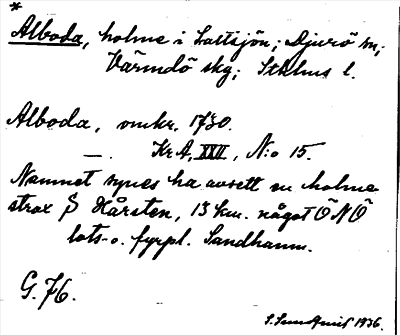 *
Alboda, holme i Saltsjön; Djurö sn;
Värmdö skg; Sthlms l.
Alboda, omkr. 1730.
—. Kr A, XXII, N:o 15.
Namnet synes ha avsett en holme
strax S Hårsten, 13 km. något ÖNÖ
lots- o. fyrpl. Sandhamn.
G. 76.
1936.